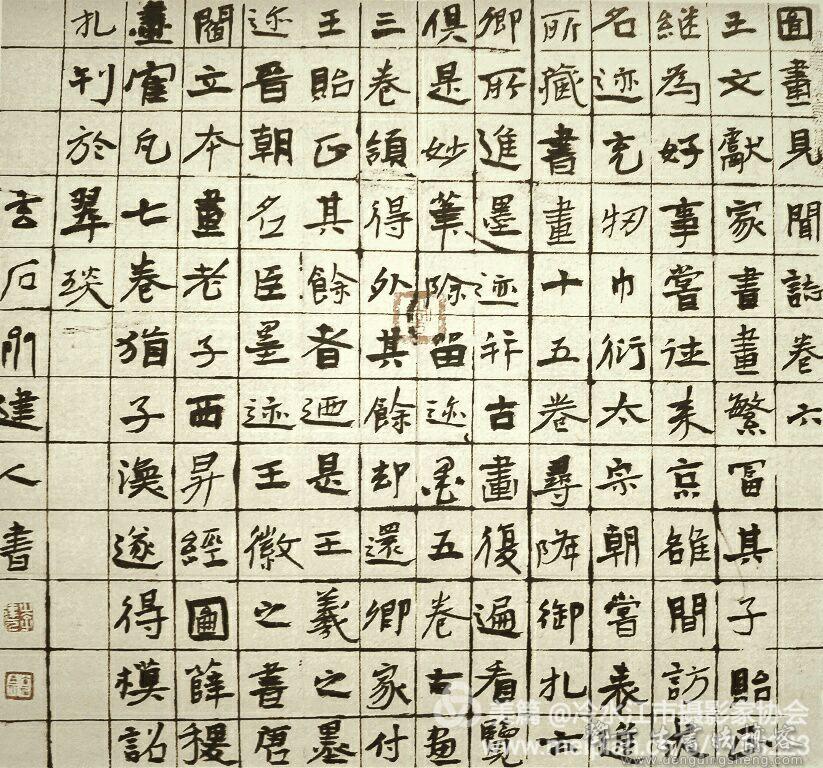 圖畫見聞誌卷六
王文獻家書畫繁富其子貽正
继為好事嘗往来京雒間訪求
名迹充牣巾衍太宗朝嘗表進
所藏書畫十五卷尋降御札云
卿所進墨迹并古畫復遍看覽
俱是妙筆除留迹墨五卷古畫
三卷領得外其餘却還卿家付
王貽正其餘者迺是王羲之墨
迹晋朝名臣墨迹王徽之書唐
閻立本畫老子西昇經圖薛稷
畫隺凡七卷猶子渙遂得模詔
札刊於翠琰
玄石建人書
美篇 @冷水江市摄影家协会